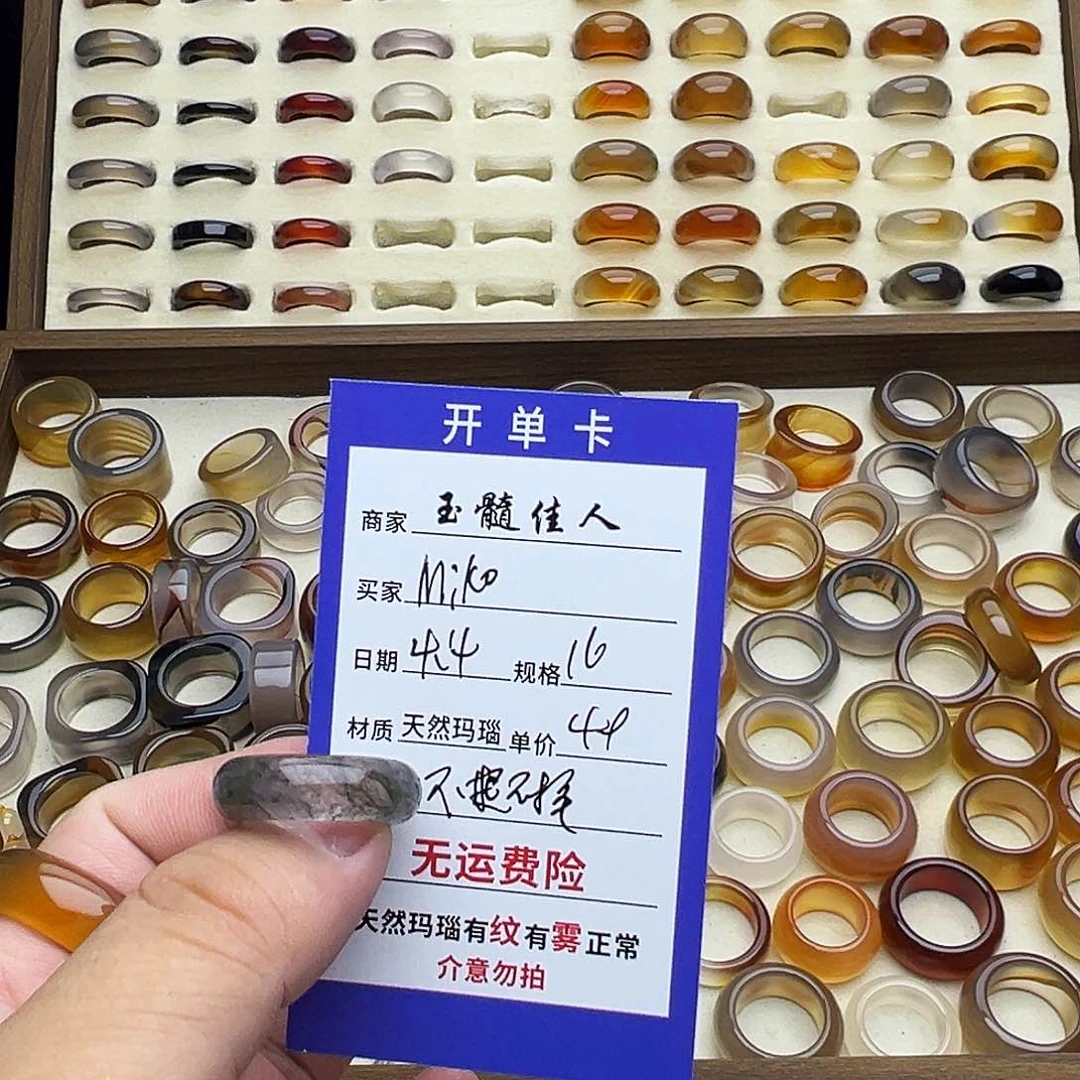 开单卡
商家 玉髓佳人
买家 Miko
日期 4.4 规格 16
材质 天然玛瑙 单价 49
不退不换
无运费险
天然玛瑙有纹有雾正常
介意勿拍